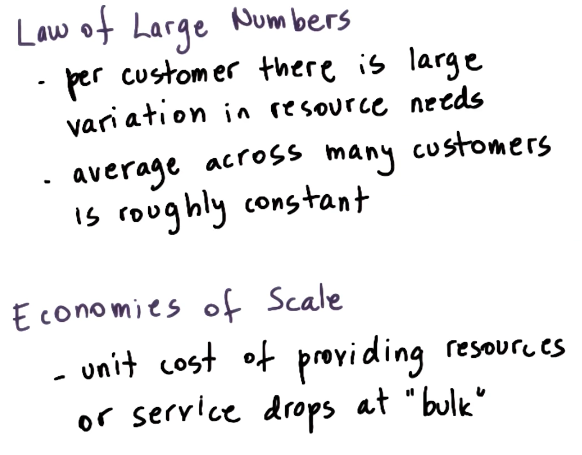 Law of Large Numbers
- per customer there is large
variation in resource needs
- average across many customers
is roughly constant
Economies of Scale
- unit cost of providing resources
or service drops at "bulk"